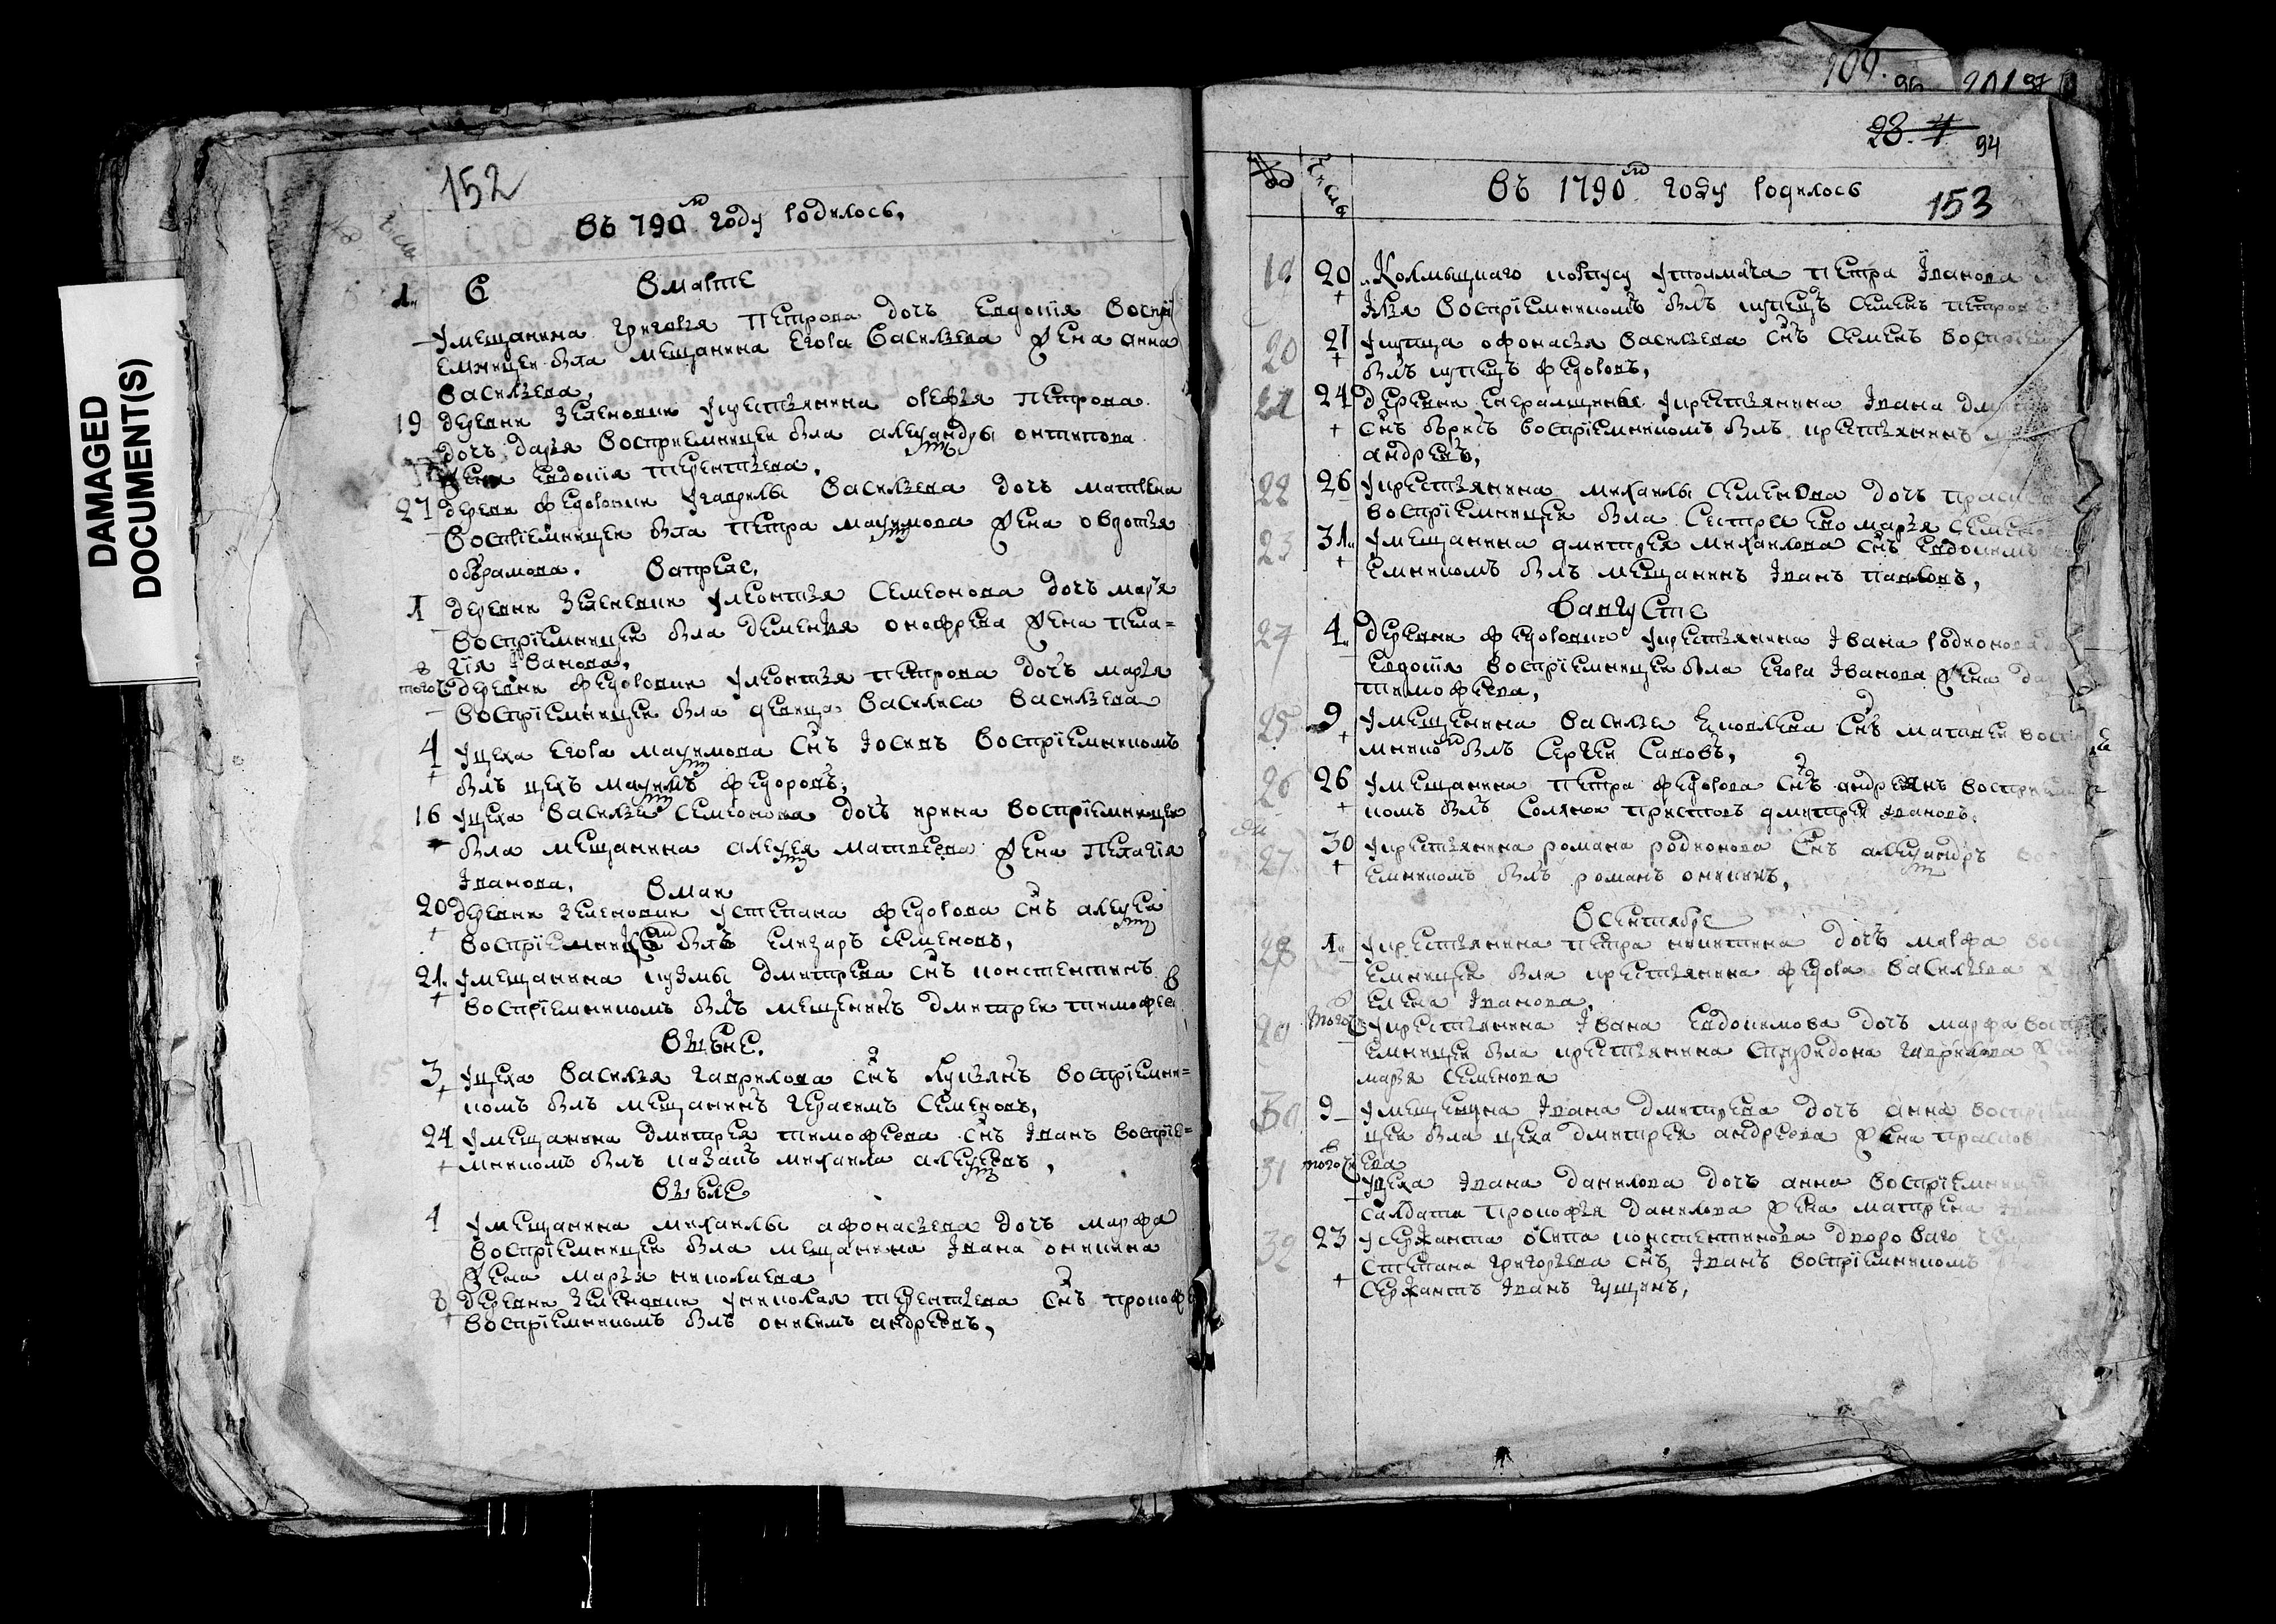 DAMAGED
DOCUMENT(S)
152
Въ 790м году родилось,
Числа
1 В Марте
У мещанина Григорья Петрова дочь Евдокия воспри
емницеи была мещанина Егора Васильева жена Анна
Васильева,
19 Деревни Зеленовки у крестьянина орефья Петрова
дочь Дарья восприемницеи была алеѯандры онтипова
жена Евдокия терентьева,
27 Деревн Федоровки у гаврилы Васильева дочь матрена
Восприемницеи была Петра маѯимова жена овдотья
обрамова. В апреле,
1 Деревни Зеленевки у леонтья Семеонова дочь марья
восприемницеи была дементья онофрева жена пела=
гия Iванова,
в того Деревни Федоровки у леонтья петрова дочь марья
восприемницеи была девица василиса васильева
4 у цеха Егора маѯимова снъ Iосивъ восприемникомъ
былъ цехъ маѯимъ федоровъ,
16 у цеха василья Семионова дочь ирина восприемницеи
была мещанина алеѯея матвеева жена пелагия
Iванова, В маи
20 Деревни зеленовки у степана федорова снъ алеѯеи
восприемникомъ былъ елизаръ семеновъ,
21 у мещанина кузмы дмитрева снъ констентинъ
восприемникомъ былъ мещенинъ дмитреи тимофеев
В июне,
3 у цеха василья гаврилова снъ лукьянъ восприемни=
комъ былъ мещанинъ герасимъ семеновъ,
24 у мещанина дмитрея тимофеева снъ Iванъ восприе=
мникомъ былъ казакъ михаила алеѯеевъ,
В июле
1 у мещанина михаилы афонасьева дочь марфа
восприемницеи была мещанина Iвана оникина
жена марья николаева
8 Деревни зеленовки у николая терентьева снъ прокоф
восприемникомъ былъ онисимъ андреевъ,
109. 96 201 97
23. 4 94
№ Числа
Въ 1790м году родилось 153
19 20 Колмыцкаго корпусу у толмача петра Iванова
Iлья восприемникомъ былъ купецъ семенъ петровъ
20 21 у купца офонасья васильева снъ семенъ восприем
былъ купецъ федоровъ,
21 24 Деревни енералщины у крестьянина Iвана дми
снъ борисъ восприемникомъ былъ крестьянинъ
андреевъ,
22 26 у крестьянина михаилы семенова дочь праск
восприемницеи была сестра ево марья семено
23 31 у мещанина дмитрея михаилова снъ евдокимъ
емникомъ былъ мещанинъ Iванъ павловъ,
В августе
24 4 Деревни федоровки у крестьянина Iвана родионова
евдокия восприемницеи была егора Iванова жена да
тимофеева,
25 9 у мещенина василье снъ матвеи воспр
мникомъ былъ сергеи савовъ,
26 26 у мещанина петра федорова снъ андреянъ восприем
комъ былъ соляной приставъ дмитреи Iвановъ.
27 30 у крестьянина романа родионова снъ алеѯандръ
емникомъ былъ романъ оникинъ,
В сентябре
28 1 у крестьянина петра никитина дочь марфа вос
емницеи была крестьянина федора васильева
елена Iванова,
29 в того у крестьянина Iвана евдокимова дочь марфа воспр
емницеи была крестьянина спиридона гаврилова
марья семенова
30 9 у мещенина Iвана дмитрева дочь анна восприем
цеи была цеха дмитрея андреева жена прасков
ева
31 в того у цеха Iвана данилова дочь анна восприемниц
салдата прокофья данилова жена матрена
32 23 у сержанта осипа констентинова дворового
степана григорьева снъ Iванъ восприемникомъ
сержантъ Iванъ гущинъ,